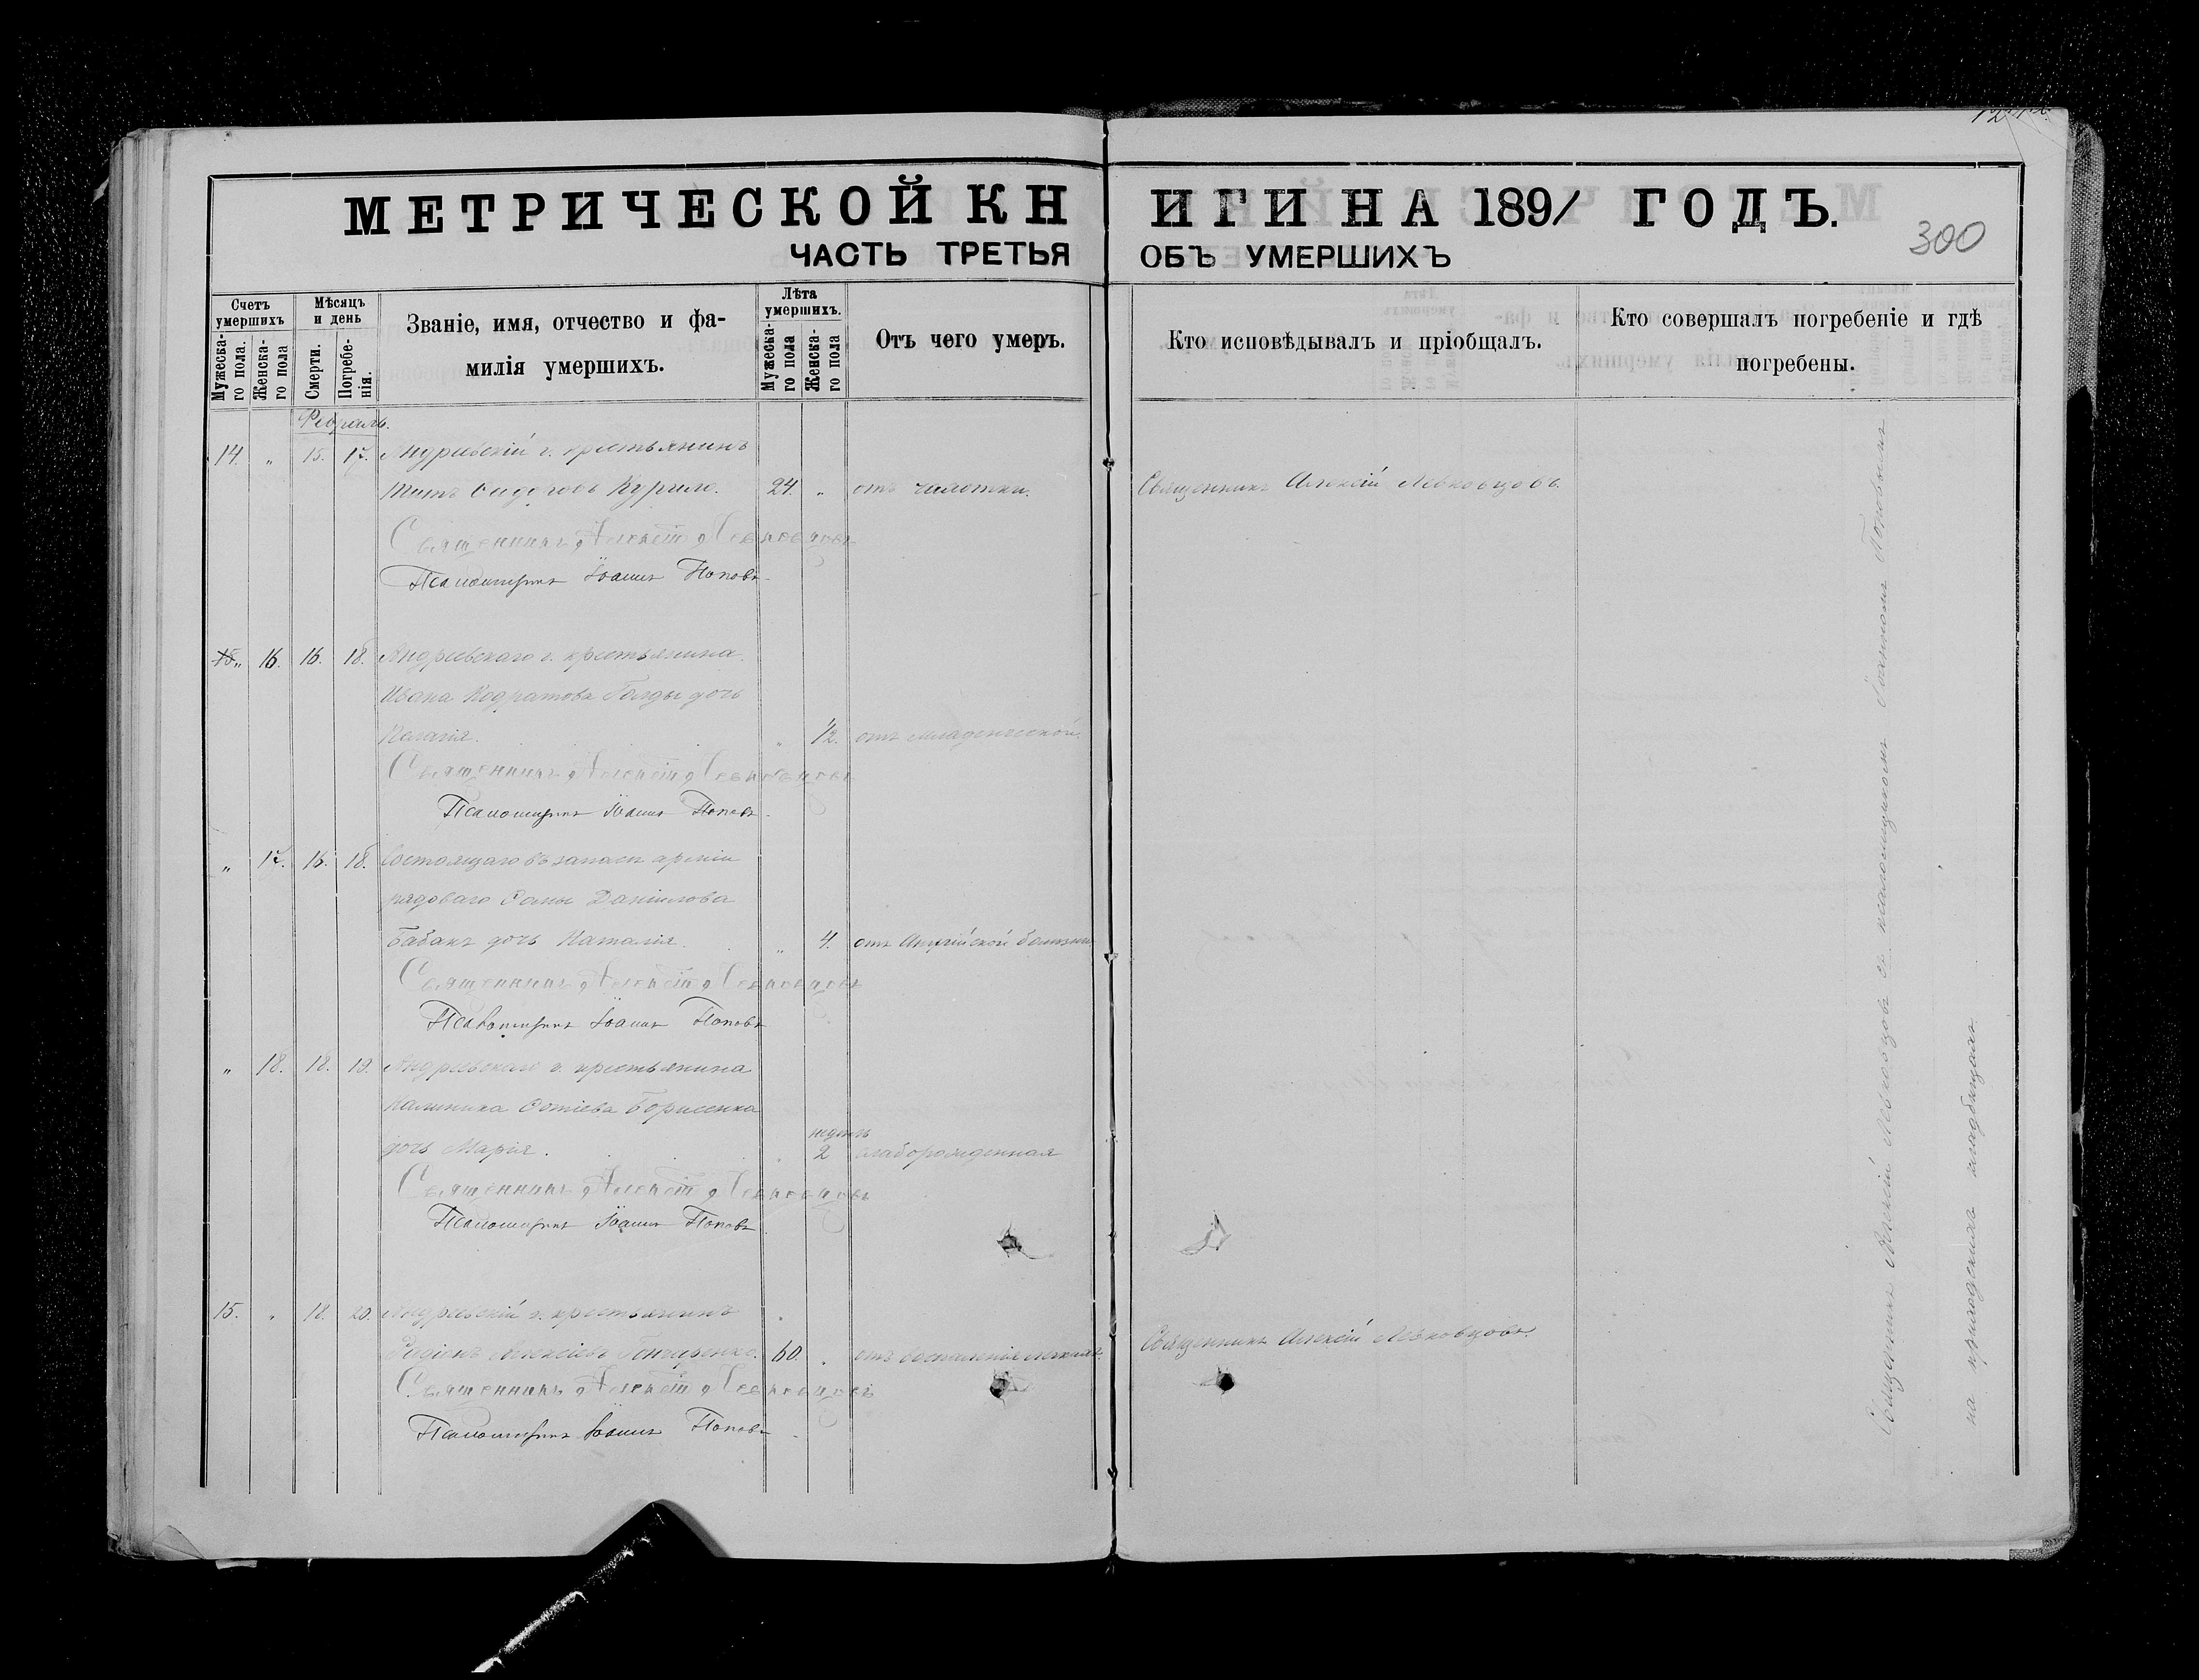 МЕТРИЧЕСКОЙ КНИГИ НА 1891 ГОДЪ.
300
ЧАСТЬ ТРЕТЬЯ ОБЪ УМЕРШИХЪ
Счетъ умершихъ
Мужеска-го пола.
Женска-го пола
Мѣсяцъ и день
Смерти.
Погребе-нія.
Званіе, имя, отчество и фа-
милія умершихъ.
Лѣта умершихъ.
Мужеска-го пола
Женска-го пола
Отъ чего умеръ.
Кто исповѣдывалъ и пріобщалъ.
Кто совершалъ погребеніе и гдѣ
погребены.
Февраль.
14. „ 15. 17. Андреевскій г. крестьянинъ
Титъ Сидоровъ Курило. 24. „ отъ чахотки. Священникъ Алексій Левковцовъ.
Священникъ Алексій Левковцовъ
Псаломщикъ Іоаннъ Поповъ
15 „ 16. 16. 18. Андреевскаго г. крестьянина
Ивана Кодратова Голды дочь
Пелагія. „ 1/2. отъ младенческой.
Священникъ Алексій Левковцовъ
Псаломщикъ Іоаннъ Поповъ
„ 17. 16. 18. Состоящаго въ запасѣ арміи
рядоваго Данилова
Бабакъ дочь Наталія. „ 4. отъ Англійской болѣзни
Священникъ Алексій Левковцовъ
Псаломщикъ Іоаннъ Поповъ
„ 18. 18. 19. Андреевскаго г. крестьянина
Калиника Фотіева Борисенка
недѣль
дочь Марія. 2 слаборожденная
Священникъ Алексій Левковцовъ
Псаломщикъ Іоаннъ Поповъ
15. „ 18. 20. Андреевскій г. крестьянинъ
Родіонъ Алексіевъ Гончаренко. 60. „ отъ воспаленія легкихъ. Священникъ Алексій Левковцовъ.
Священникъ Алексій Левковцовъ
Псаломщикъ Іоаннъ Поповъ
Священникъ Алексій Левковцовъ съ псаломщикомъ Іоанномъ Поповымъ
на приходскомъ кладбищѣ.